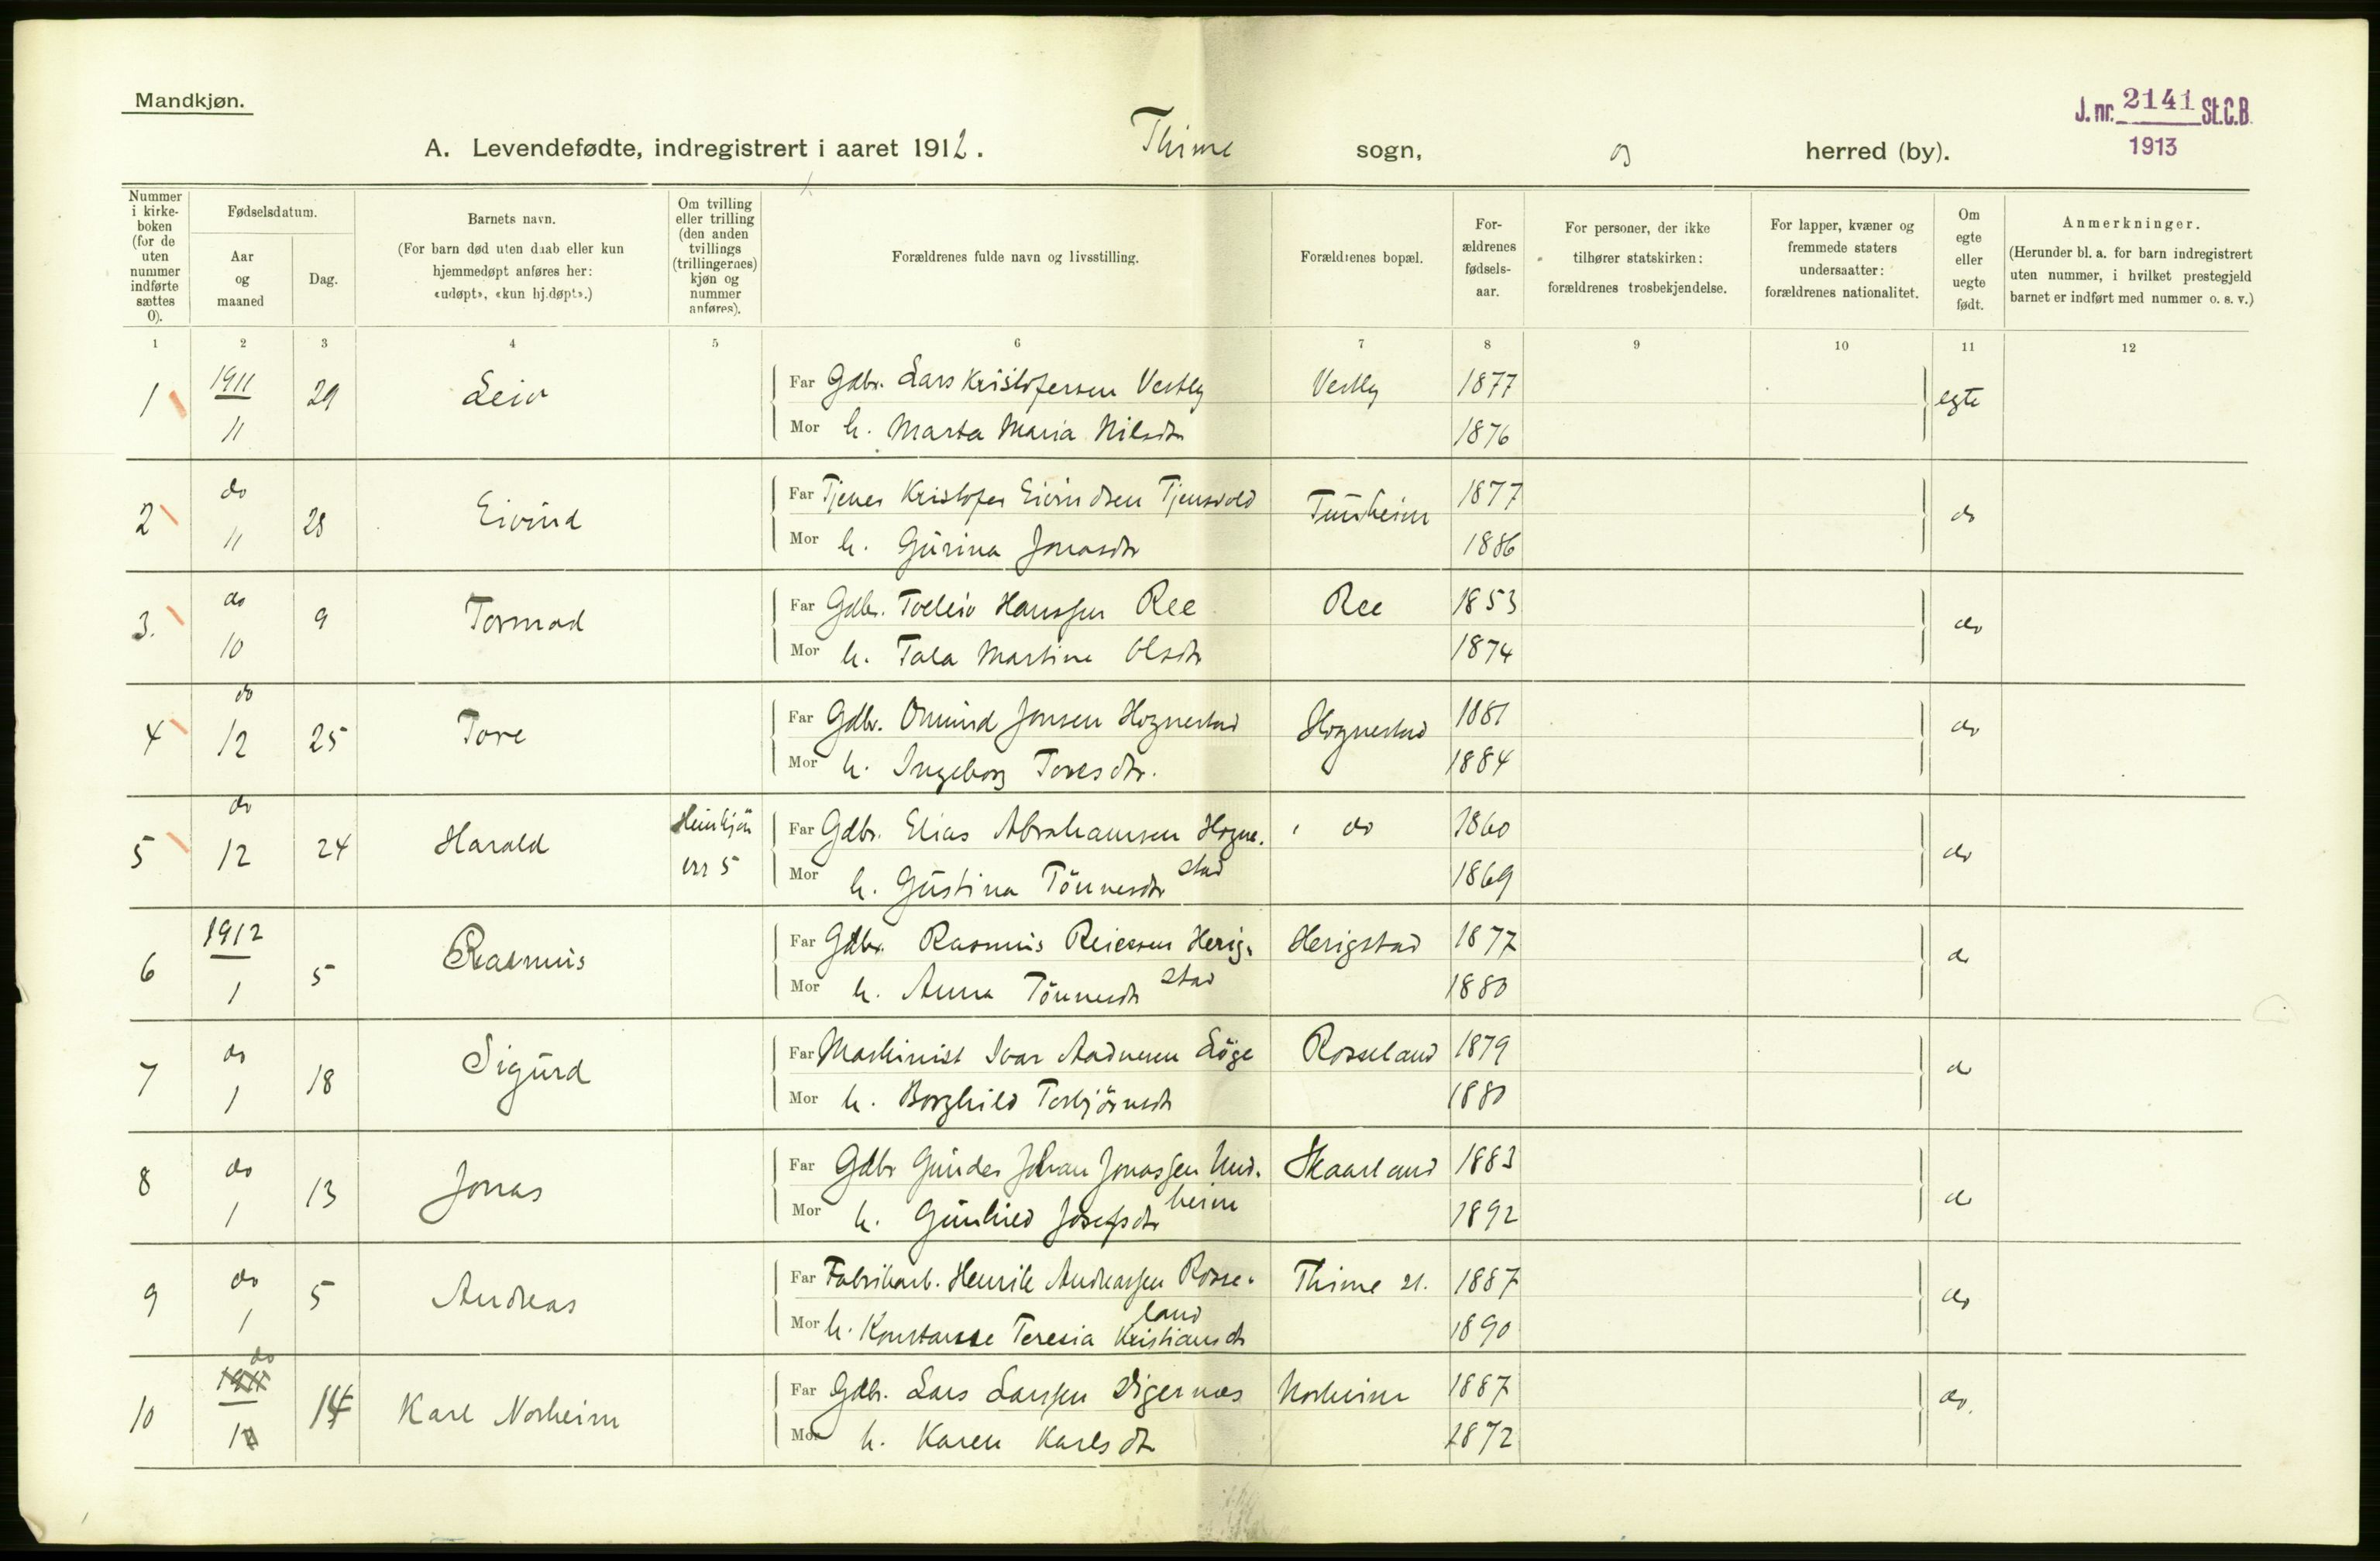 Mandkjøn.
J. nr. 2141 St.C.B.
1913
A. Levendefødte, indregistrert i aaret 1912. Thime sogn, og herred (by).
Nummer i kirke-boken (for de uten nummer indførte sættes 0).
Fødselsdatum.
Aar og maaned
Dag.
Barnets navn.
(For barn død uten daab eller kun hjemmedøpt anføres her: «udøpt», «kun hj.døpt».)
Om tvilling eller trilling (den anden tvillings (trillingernes) kjøn og nummer anføres).
Forældrenes fulde navn og livsstilling.
Forældrenes bopæl.
For-ældrenes fødsels-aar.
For personer, der ikke tilhører statskirken: forældrenes trosbekjendelse.
For lapper, kvæner og fremmede staters undersaatter: forældrenes nationalitet.
Om egte eller uegte født.
Anmerkninger.
(Herunder bl. a. for barn indregistrert uten nummer, i hvilket prestegjeld barnet er indført med nummer o. s. v.)
1 2 3 4 5 6 7 8 9 10 11 12
1 1911 11 29 Leiv Far Gdbr. Lars Kristofersen Vestly Vestly 1877 egte
Mor h. Marta Maria Nilsdtr 1876
2 do 11 28 Eivind Far Tjener Kristofer Eivindsen Tjensvold Tunheim 1877 do
Mor h. Gurina Jonasdtr 1886
3. do 10 9 Tormod Far Gdbr. Tolleiv Hanssen Ree Ree 1853 do
Mor h. Tala Martine Olsdtr 1874
4 do 12 25 Tore Far Gdbr. Omund Jonsen Hognestad Hognestad 1881 do
Mor h. Ingeborg Toresdtr. 1884
5 do 12 24 Harald Far Gdbr. Elias Abrahamsen Hogne- do 1860 do
stad
nr 5 Mor h. Gustina Tönnesdtr 1869
6 1912 1 5 Rasmus Far Gdbr. Rasmus Reiersen Herig- Herigstad 1877 do
stad
Mor h. Anna Tönnesdtr 1880
7 do 1 18 Sigurd Far Maskinist Ivar Aadnesen Löge Rosseland 1879 do
Mor h. Borghild Torbjörnsdtr 1880
8 do 1 13 Jonas Far Gdbr Gunder Johan Jonassen Und- Skaarland 1883 do
heim
Mor h. Gunhild Josefsdtr 1892
9 do 1 5 Andreas Far Fabrikarb. Henrik Andreassen Rosse- Thime st. 1887 do
land
Mor h. Konstanse Teresia Kristiansdtr 1890
10 do 1 14 Karl Norheim Far Gdbr. Lars Larssen Digernes Norheim 1887 do.
Mor h. Karen Karlsdtr 1872